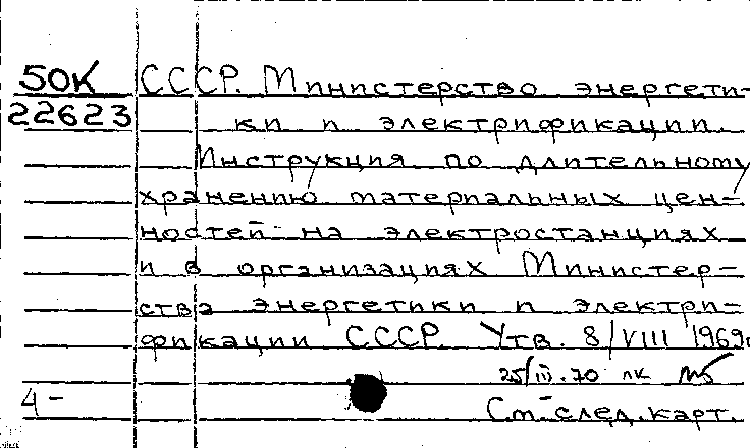 50К СССР. Министерство энергети-
22623 ки и электрификации.
Инструкция по длительному
хранению материальных цен-
ностей на электростанциях
и в организациях Министер-
ства энергетики и электри-
фикации СССР. Утв. 8/VIII 1969г.
25/III.70 лк
4-
См. след. карт.